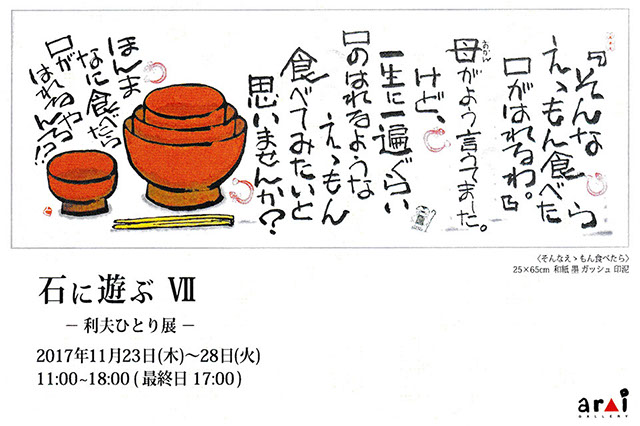 『そんな
えゝもん食べたら
口がはれるわ。』
母がよう言うてました。
おかん
けど、
一生に一遍ぐらい
口のはれるような
えゝもん
食べてみたいと
思いませんか？
ほんま
なに食べたら
口が
はれるんやろ!?
〈そんなえゝもん食べたら〉
25×65cm 和紙 墨 ガッシュ 印泥
石に遊ぶ Ⅶ
－ 利夫ひとり展 －
2017年11月23日(木)～28日(火)
11:00~18:00 ( 最終日 17:00 )
arai
GALLERY